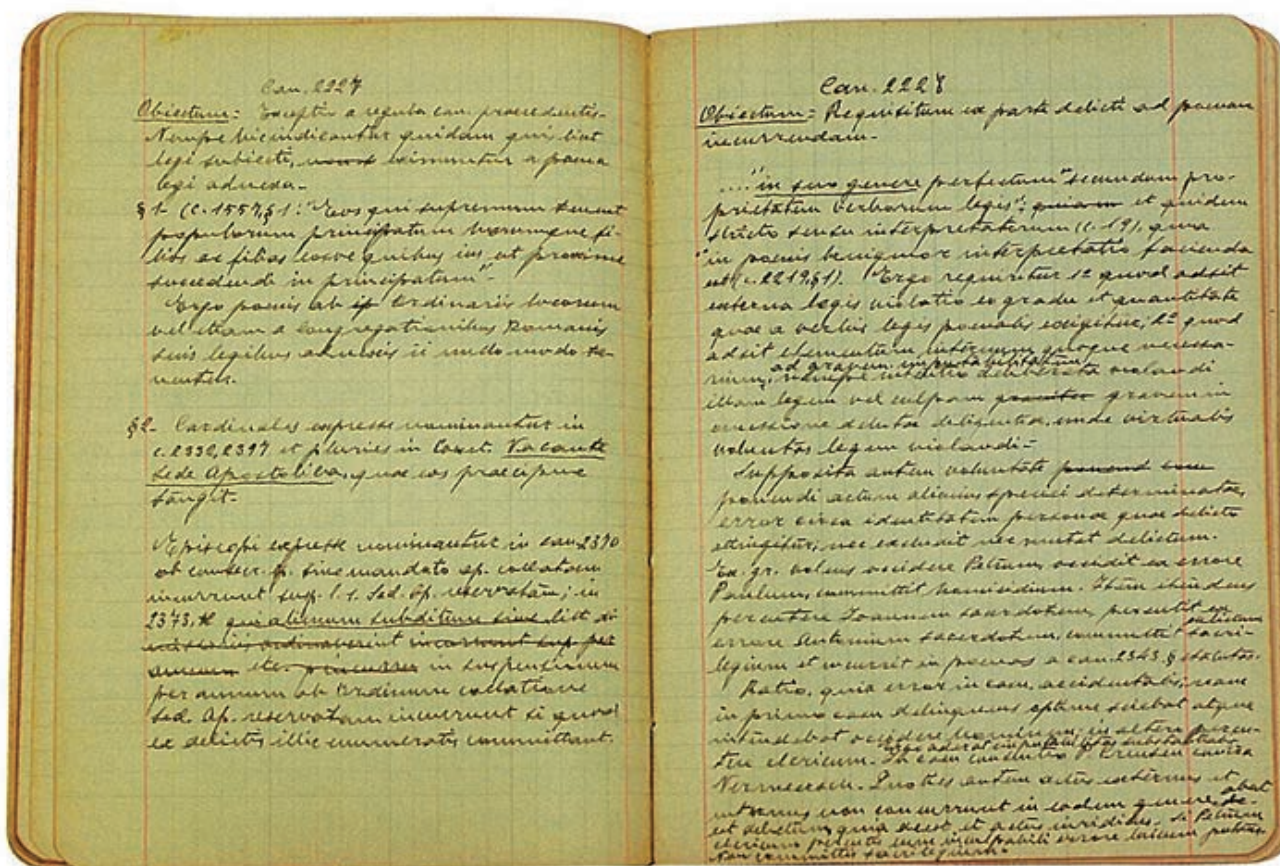 Can. 2227
Obiectum = Exceptio a regula can. praecedentis.
Nempe hic indicantur quidam qui, licet
legi subiecti, eximuntur a poena
legi adnexa.
§ 1- (c. 1557, § 1: "Eos qui supremum tenent
populorum principatum horumque fi-
lios ac filias eosve quibus ius est proxime
succedendi in principatum".
Ergo poenis ab Ordinariis locorum
vel etiam a Congregationibus Romanis
suis legibus adnexis ii nullo modo te-
nentur.
§ 2- Cardinales expresse nominantur in
c. 2332, 2397 et pluries in Const. Vacante
Sede Apostolica, quae eos praecipue
tangit.
Episcopi expresse nominantur in can. 2370
ob consecr. ep. sine mandato ap. collatam
incurrunt susp. l. s. Sed. Ap. reservatam; in
2373, qui alienum subditum sine list. di-
missoriis ordinaverint incurrunt sup. per
annum etc. in suspensionem
per annum ab ordinum collatione
Sed. Ap. reservatam incurrunt si quod
ex delictis illic enumeratis committant.
Can. 2228
Obiectum = Requisitum ex parte delicti ad poenam
incurrendam.
...."in suo genere perfectum" secundum pro-
prietatem verborum legis"; quidem et quidem
stricto sensu interpretatorum (c. 19), quia
"in poenis benignior interpretatio facienda
est (c. 2219, § 1). Ergo requiritur 1º quod adsit
externa legis violatio eo gradu et quantitate
quae a verbis legis poenalis exigitur, 2º quod
adsit elementum internum quoque necessa-
ad gravem imputabilitatem
rium, nempe intentio deliberata violandi
illam legem vel culpam graviter gravem in
omissione debitae diligentiae, unde virtualis
voluntas legem violandi.-
Supposita autem voluntate
ponendi actum alicuius speciei determinatae,
error circa identitatem personae quae delicto
attingitur, nec excludit nec mutat delictum.
Ex. gr. volens occidere Petrum, occidit ex errore
Paulum, committit homicidium. Item intendens
percutere Joannem sacerdotem, percutit ex
errore Antonium sacerdotem, committit sacri-
legium et incurrit in poenas a can. 2343, § statutas.
Ratio, quia error in casu, accidentalis, nam
in primo casu delinquens optime sciebat atque
intendebat occidere hominem; in altero percu-
ergo aderat imputabilitas substantialis
tere clericum. In casu consentio P. Creusen contra
Vermeersch. Quoties autem actus externus et
internus non concurrunt in eodem genere, de-
est delictum, quia deest et actus iuridicus. Si Petrum
clericum percutis cum inculpabili errore laicum putans
non committis sacrilegium.